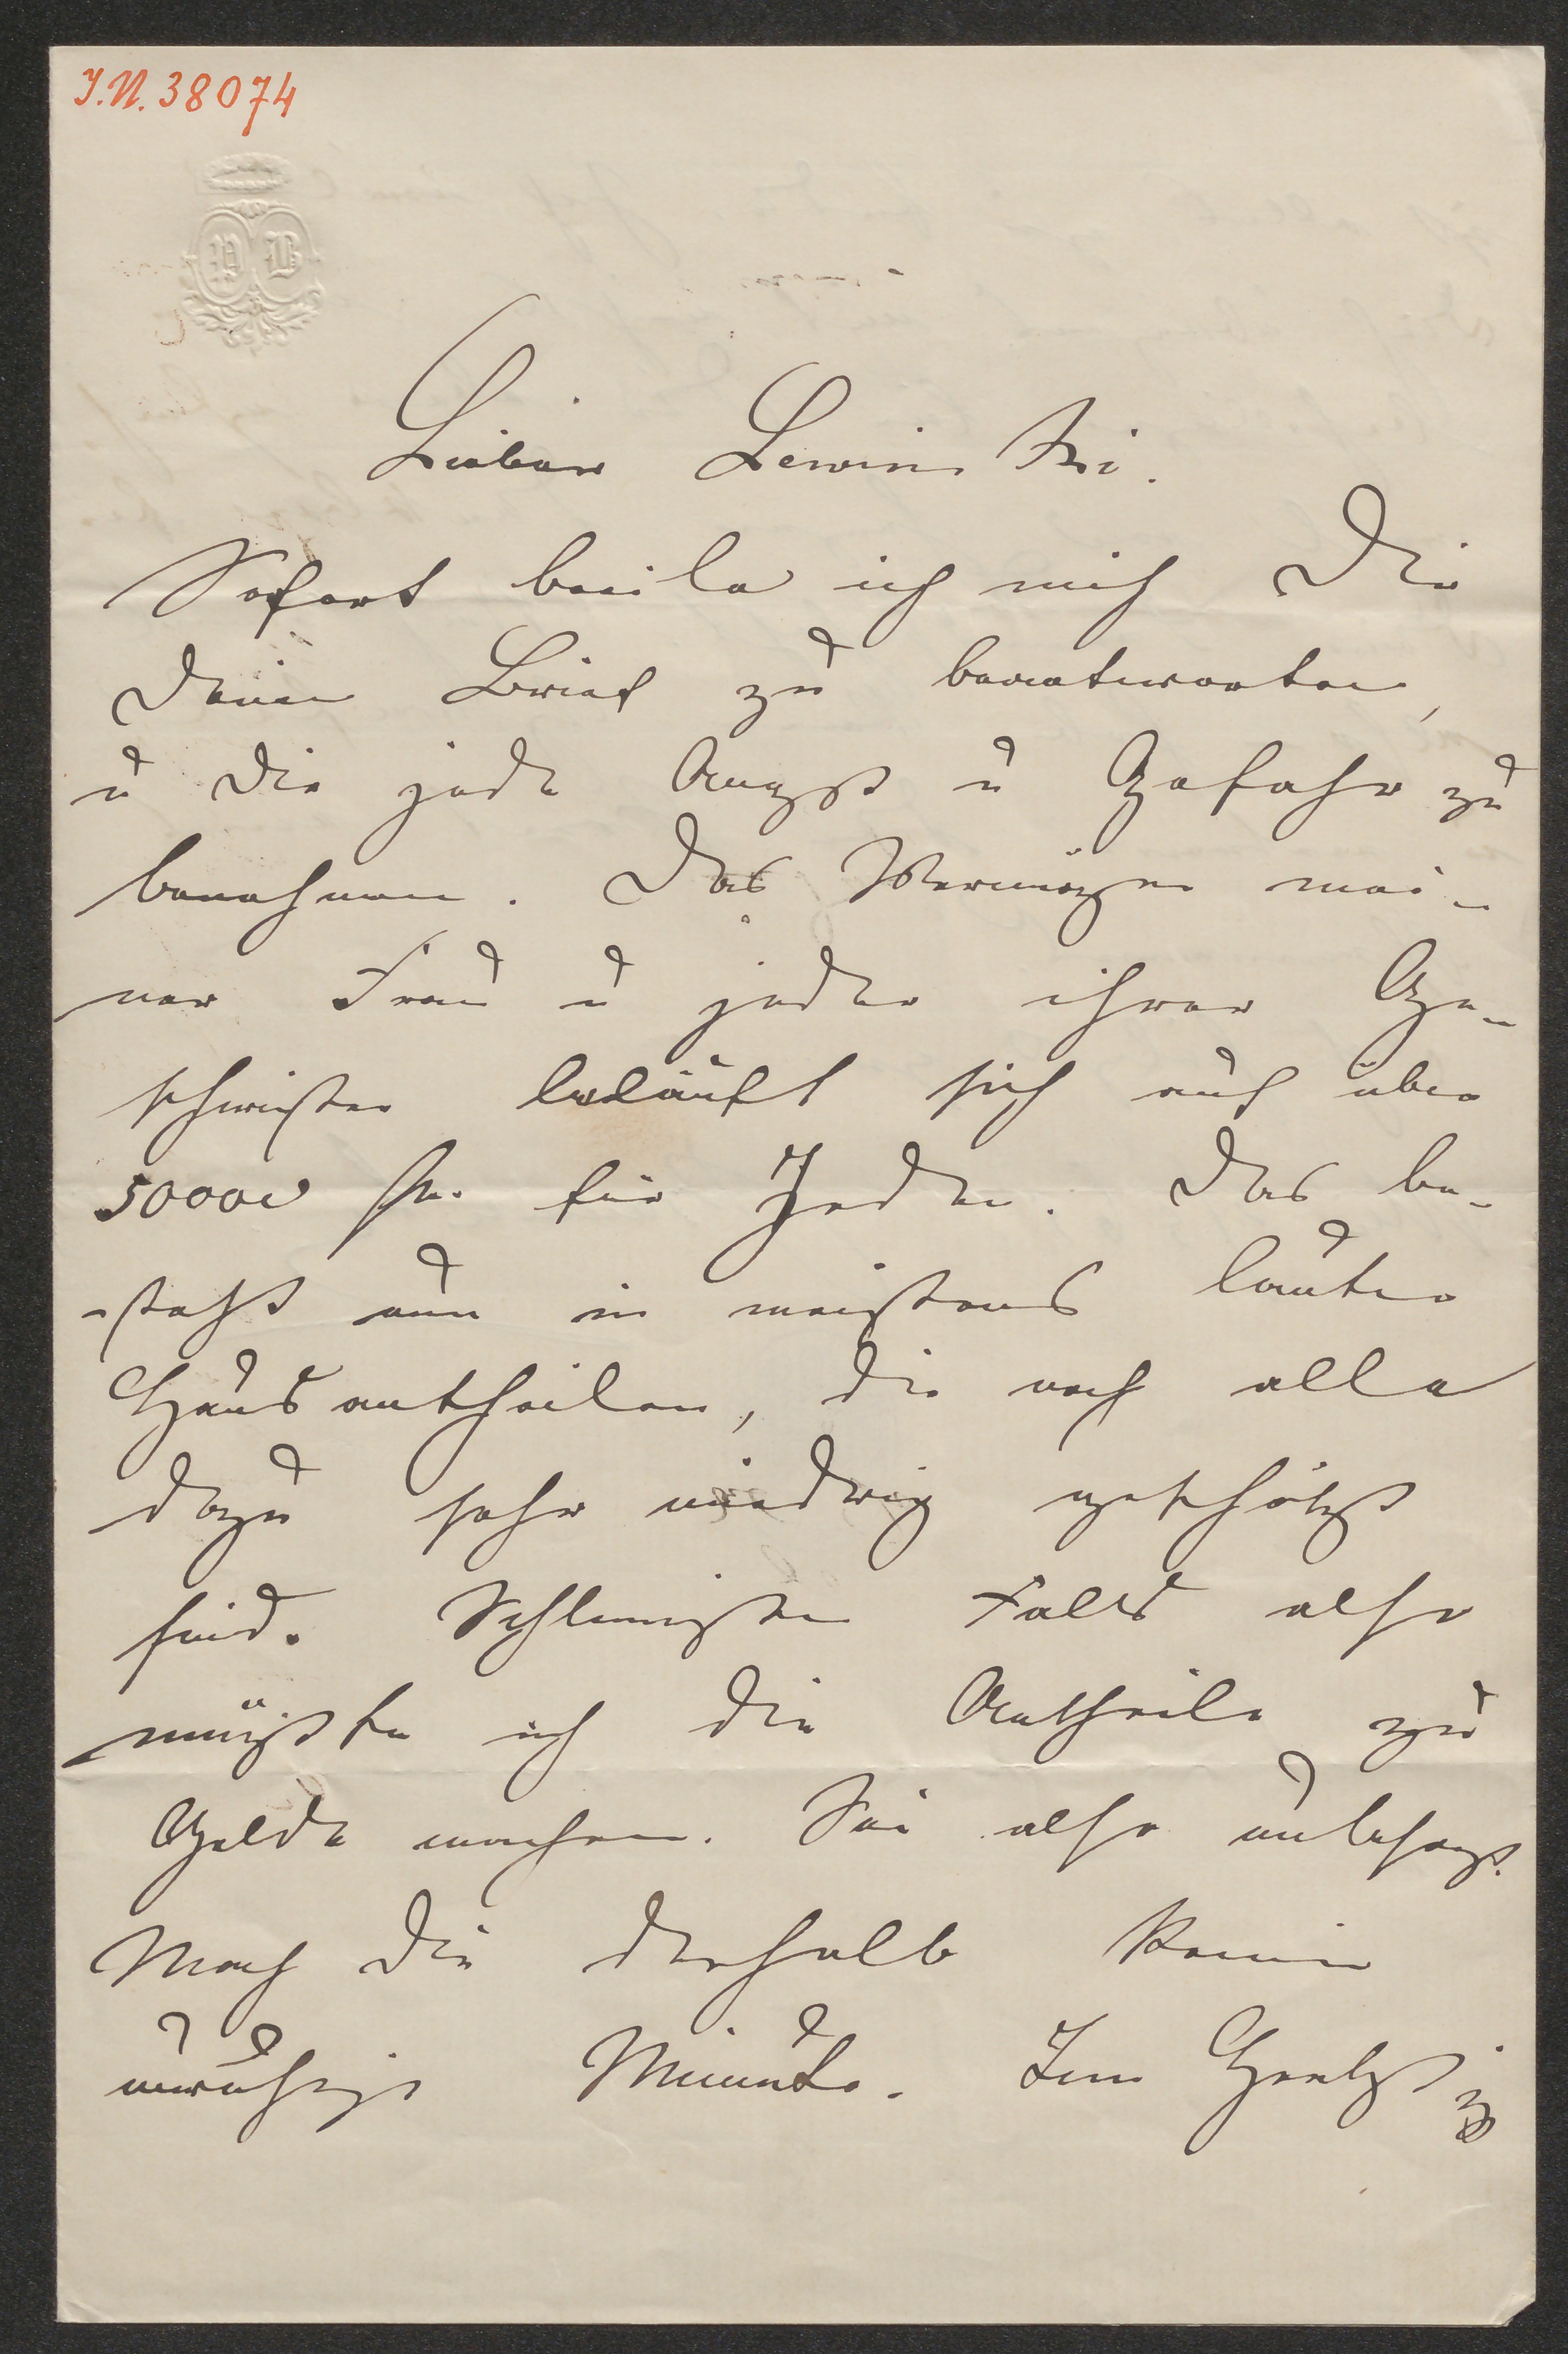 I.N. 38074
P B
Lieber Lewinski.
Sofort beeile ich mich Dir
Deinen Brief zu beantworten,
u Dir jede Angst u Gefahr zu
benehmen. Das Vermögen mei-
ner Frau u jeder ihrer Ge-
schwister beläuft sich auf über
50000 fl. für Jeden. Das be-
-steht nun in meistens lauter
Hausantheilen, die noch alle
dazu sehr niedrig geschätzt
sind. Schlimmsten Falls also
müßte ich die Antheile zu
Gelde machen. Sei also unbesorgt.
Mach Dir deshalb keine
unruhige Minute. Im Herbst